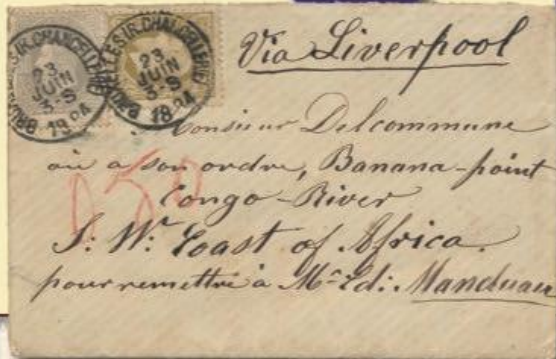 BRUXELLES (R. CHANCELLERIE)
23
JUIN
3-S
1884
BRUXELLES (R. CHANCELLERIE)
23
JUIN
3-S
1884
Via Liverpool
Monsieur Delcommune
où à son ordre, Banana-point
Congo-River
S: W: Coast of Africa.
pour remettre à Mr Ed: Manduau